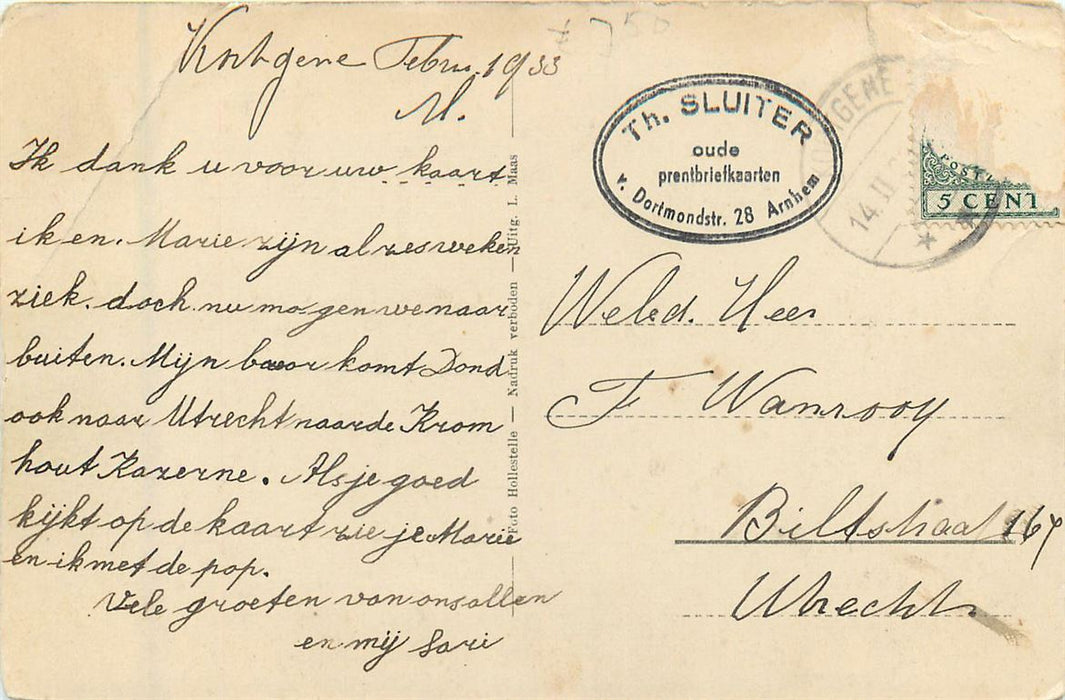 Kortgene Febru. 1933
M.
Ik dank u voor uw kaart
ik en. Marie zijn al zes weken
ziek. doch nu mogen we naar
buiten. Mijn broer komt Dond
ook naar Utrecht naar de Krom
hout Kazerne. Als je goed
kijkt op de kaart zie je Marie
en ik met de pop.
Vele groeten van ons allen
en mij Sari
Foto Hollestelle — Nadruk verboden — Uitg. I. Maas
Th. SLUITER
oude
prentbriefkaarten
v. Dortmondstr. 28 Arnhem
14.II
5 CENT
Weled. Heer
F Wanrooy
Biltstraat 167
Utrecht